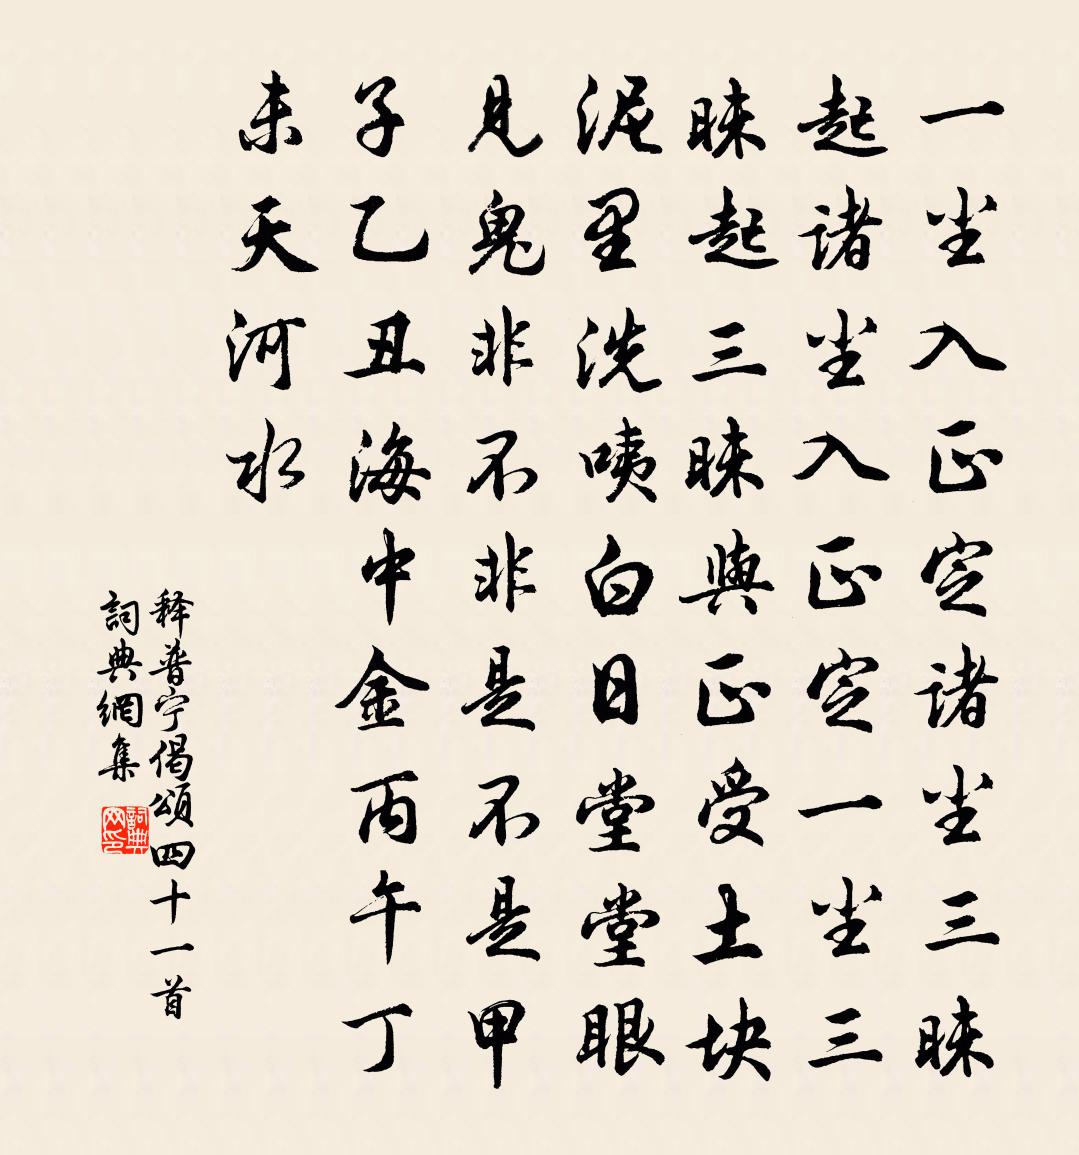 一尘入正定诸尘三昧
起诸尘入正定一尘三
昧起三昧與正受土块
泥里洗咦白日堂堂眼
見鬼非不非是不是甲
子乙丑海中金丙午丁
未天河水
释普宁偈頌四十一首
詞典網集
詞典网印